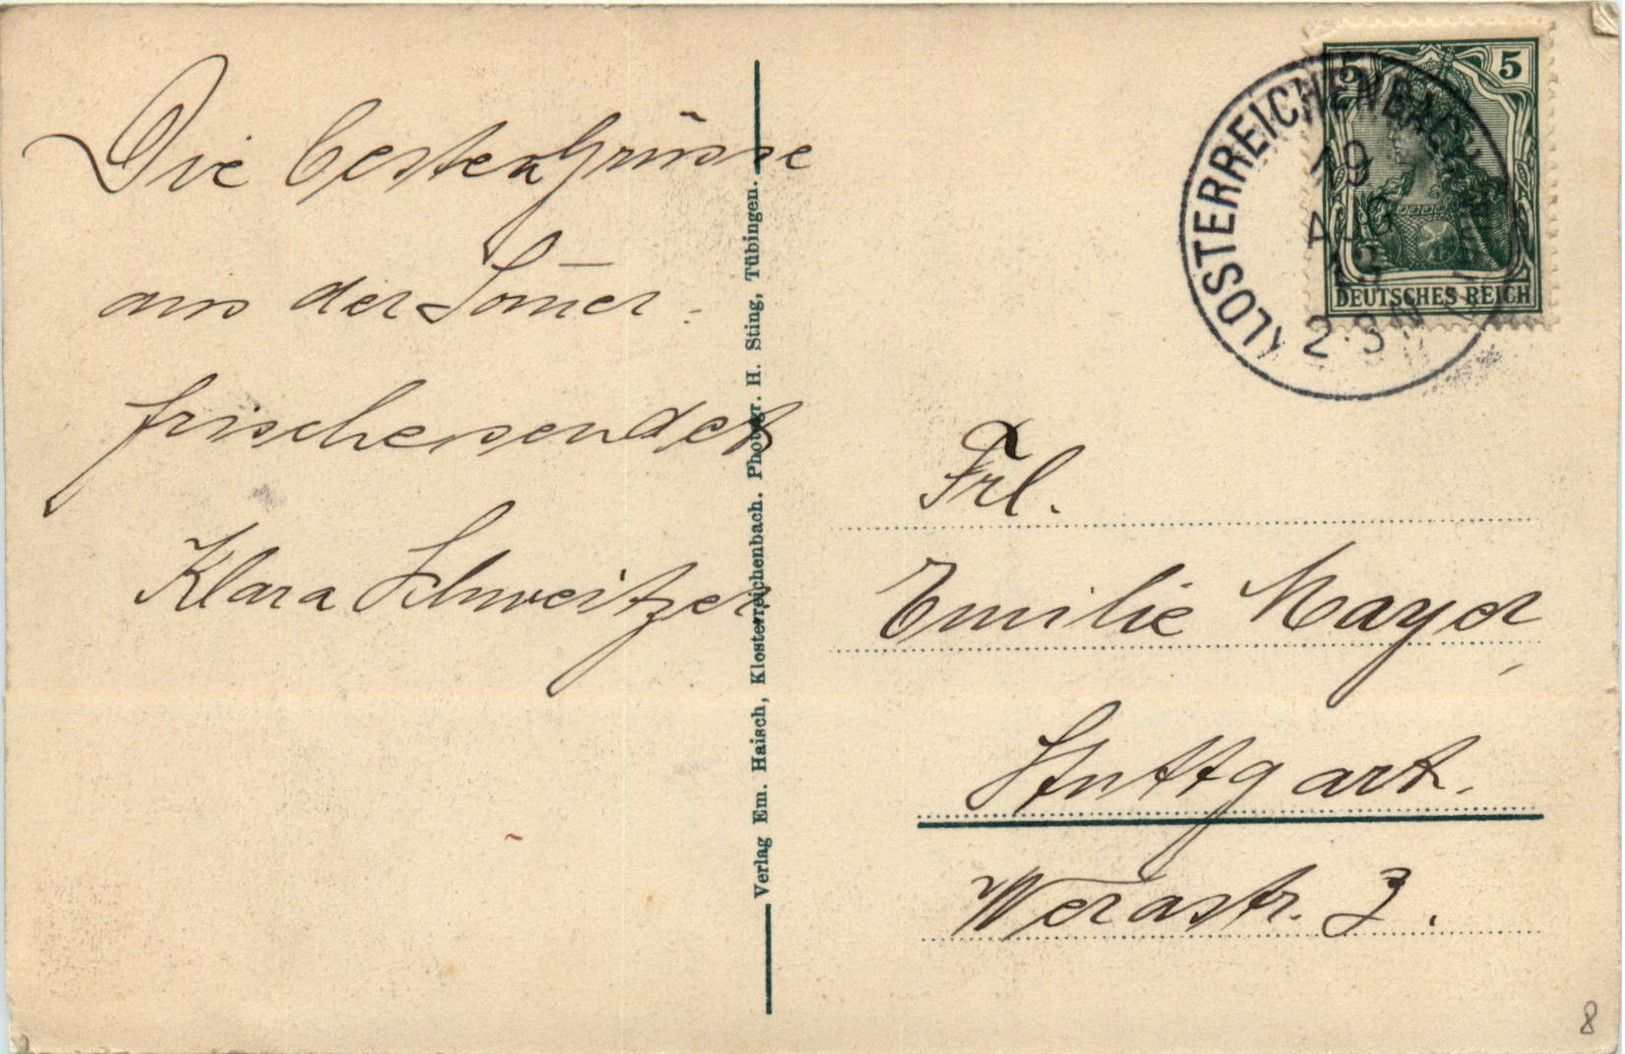 Die besten Grüsse
aus der Som̄er-
frische sendet
Klara Schweitzer
Verlag Em. Haisch, Klosterreichenbach. Photogr. H. Sting, Tübingen.
5 5
DEUTSCHES REICH
KLOSTERREICHENBACH
19
AUG
2-3 N
Frl.
Emilie Mayer,
Stuttgart.
Werastr. 3.
8